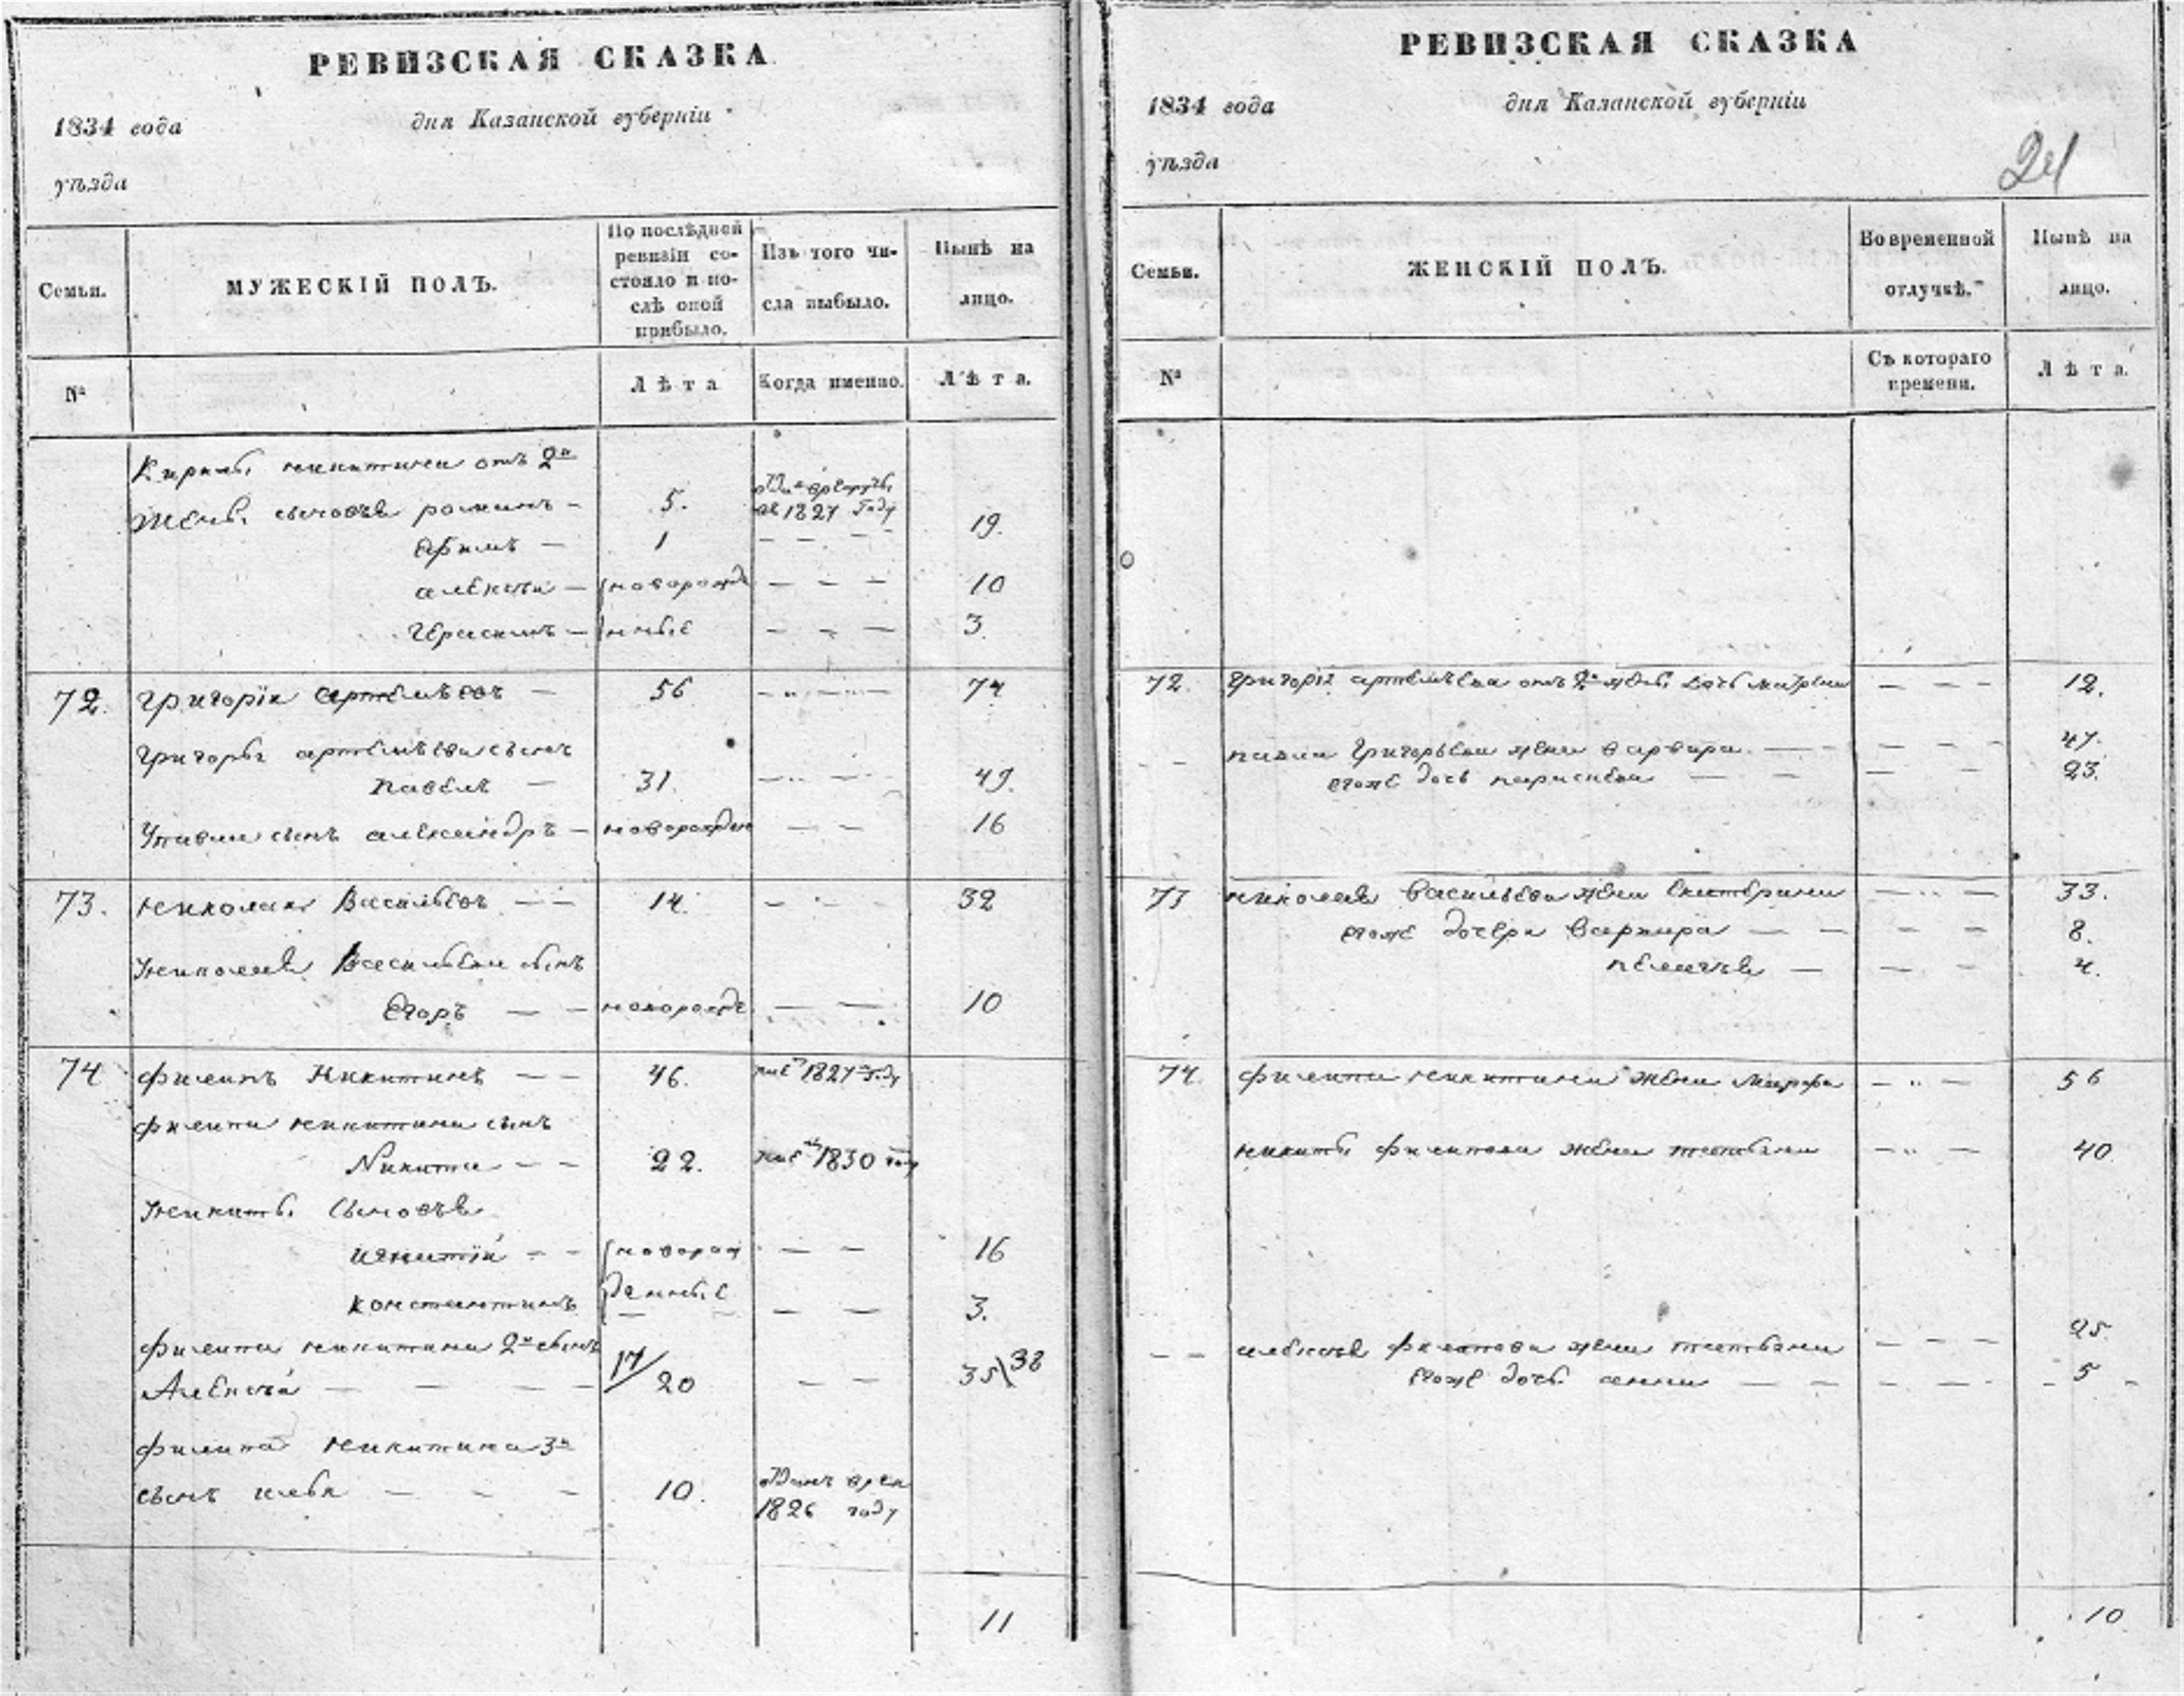 РЕВИЗСКАЯ СКАЗКА
1834 года дня Казанской губерніи
уѣзда
Семьи. МУЖЕСКІЙ ПОЛЪ. По послѣдней ревизіи состояло и послѣ оной прибыло. Изъ того числа выбыло. Нынѣ на лицо.
№ Лѣта Когда именно. Лѣта.
никитина отъ 2й
жены сыновья романъ — 5.
1827 году
Ефимъ — 1 — — — 19.
алексѣй — новорожд — — — 10
Герасимъ — нные — — — 3.
72. Григорій Артемьевъ — 56 — — — 74
Григорья артемьева сынъ
Павелъ — 31. — — — 49.
У павла сынъ александръ — новорожден — — 16
73. Николай Васильевъ — — 14. — — — 32
У николая Васильева сынъ
Егоръ — — новорожд. — — 10
74 Филипъ Никитинъ — — 46. 1827 году
Филипа никитина сынъ
Никита — — 22. 1830 году
У никиты Сыновья
игнатій — — новорож — — 16
константинъ денные — — 3.
Филипа никитина 2й сынъ
Алексѣй — — — — 17/20 — — 35\38
Филипа никитина 3й
сынъ илья — — — 10. 1826 году
11
РЕВИЗСКАЯ СКАЗКА
1834 года дня Казанской губерніи
уѣзда
24
Семьи. ЖЕНСКІЙ ПОЛЪ. Во временной отлучкѣ. Нынѣ на лицо.
№ Съ котораго времени. Лѣта.
72. Григорія артемьева отъ 2й жены дочь матрена — — — 12.
— — павла Григорьева жена варвара — — — 47.
егоже дочь парасковья — — — 23.
73 николая Васильева жена Екатерина — — — 33.
егоже дочери Варвара — — — — 8.
пелагея — — — — 4.
74. Филипа никитина жена Марфа — — — 56
никиты филипова жена татьяна — — — 40.
— — алексѣя филипова жена татьяна — — — 25.
егоже дочь анна — — — — — 5
10